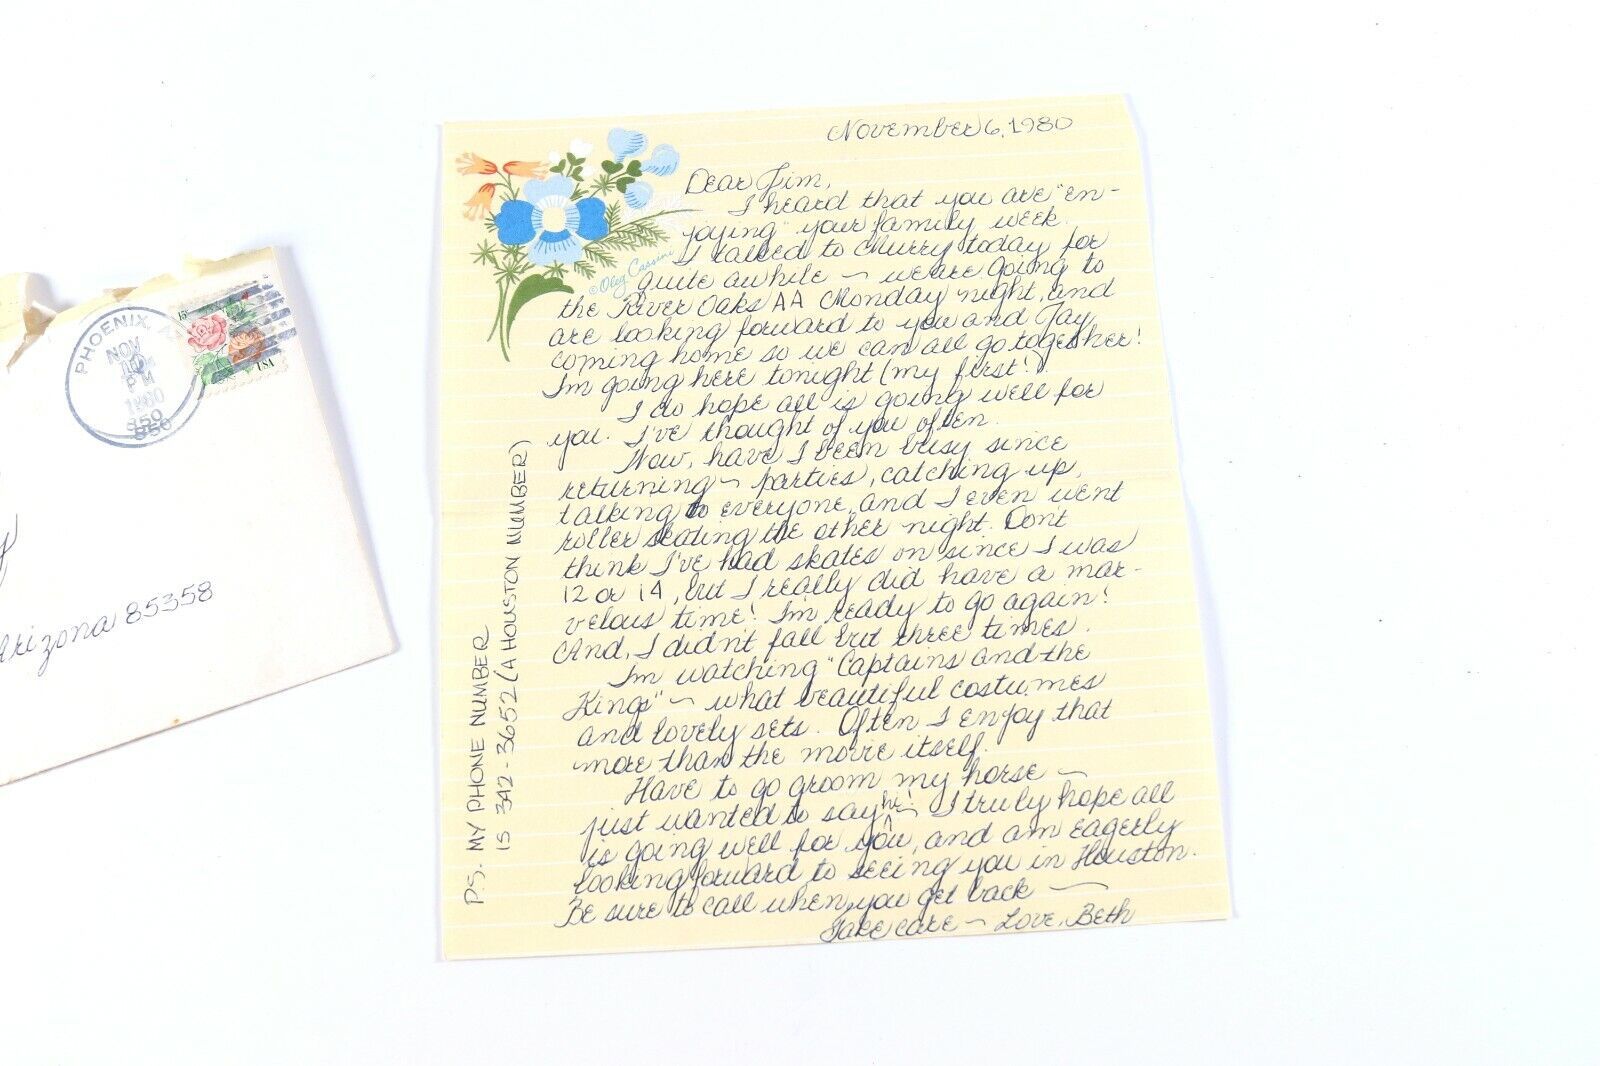 November 6, 1980
Dear Jim,
I heard that you are "en-
joying" your family week.
I talked to Churry today for
quite awhile ~ we are going to
the River Oaks AA Monday night, and
are looking forward to you and Jay
coming home so we can all go together!
I'm going here tonight (my first!).
I do hope all is going well for
you. I've thought of you often.
Now, have I been busy since
returning ~ parties, catching up,
talking to everyone, and I even went
roller skating the other night. Don't
think I've had skates on since I was
12 or 14, but I really did have a mar-
velous time! I'm ready to go again!
And, I didn't fall but three times.
I'm watching "Captains and the
Kings" ~ what beautiful costumes
and lovely sets. Often I enjoy that
more than the movie itself.
Have to go groom my horse ~
just wanted to say hi! ~ I truly hope all
is going well for you, and am eagerly
looking forward to seeing you in Houston.
Be sure to call when you get back ~
Take care ~ Love, Beth
P.S. MY PHONE NUMBER
IS 342-3652 (A HOUSTON NUMBER)
© Oleg Cassini
PHOENIX, A
NOV
PM
1980
850
15c
USA
Arizona 85358